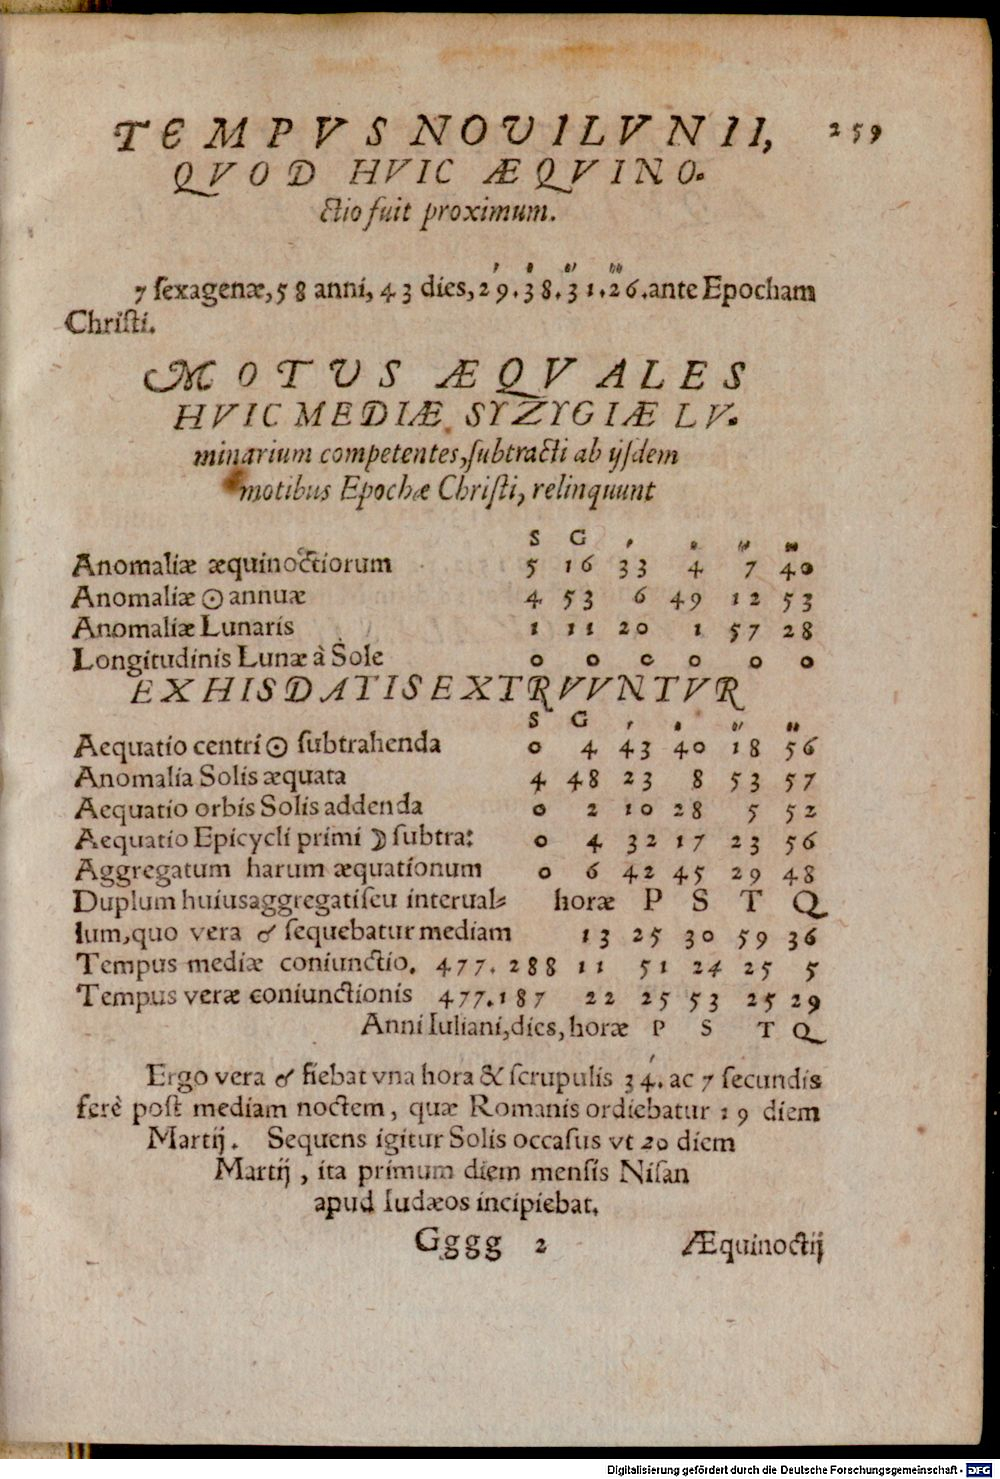 TEMPVS NOVILVNII, 259
QVOD HVIC ÆQVINO-
ctio fuit proximum.
′ ″ ‴ ⁗
7 sexagenæ, 58 anni, 43 dies, 29. 38. 31. 26. ante Epocham
Christi.
MOTVS ÆQVALES
HVIC MEDIÆ SYZYGIÆ LV-
minarium competentes, subtracti ab ijsdem
motibus Epochæ Christi, relinquunt
S G ′ ″ ‴ ⁗
Anomaliæ æquinoctiorum 5 16 33 4 7 40
Anomaliæ ☉ annuæ 4 53 6 49 12 53
Anomaliæ Lunaris 1 11 20 1 57 28
Longitudinis Lunæ à Sole 0 0 0 0 0 0
EX HIS DATIS EXTRVVNTVR
S G ′ ″ ‴ ⁗
Aequatio centri ☉ subtrahenda 0 4 43 40 18 56
Anomalia Solis æquata 4 48 23 8 53 57
Aequatio orbis Solis addenda 0 2 10 28 5 52
Aequatio Epicycli primi ☽ subtra: 0 4 32 17 23 56
Aggregatum harum æquationum 0 6 42 45 29 48
Duplum huius aggregati seu interual- horæ P S T Q
lum, quo vera ☌ sequebatur mediam 13 25 30 59 36
Tempus mediæ coniunctio. 477. 288 11 51 24 25 5
Tempus veræ coniunctionis 477. 187 22 25 53 25 29
Anni Iuliani, dies, horæ P S T Q
Ergo vera ☌ fiebat vna hora & scrupulis 34′. ac 7 secundis
ferè post mediam noctem, quæ Romanis ordiebatur 19 diem
Martij. Sequens igitur Solis occasus vt 20 diem
Martij, ita primum diem mensis Nisan
apud Iudæos incipiebat.
Gggg 2 Æquinoctij
Digitalisierung gefördert durch die Deutsche Forschungsgemeinschaft - DFG